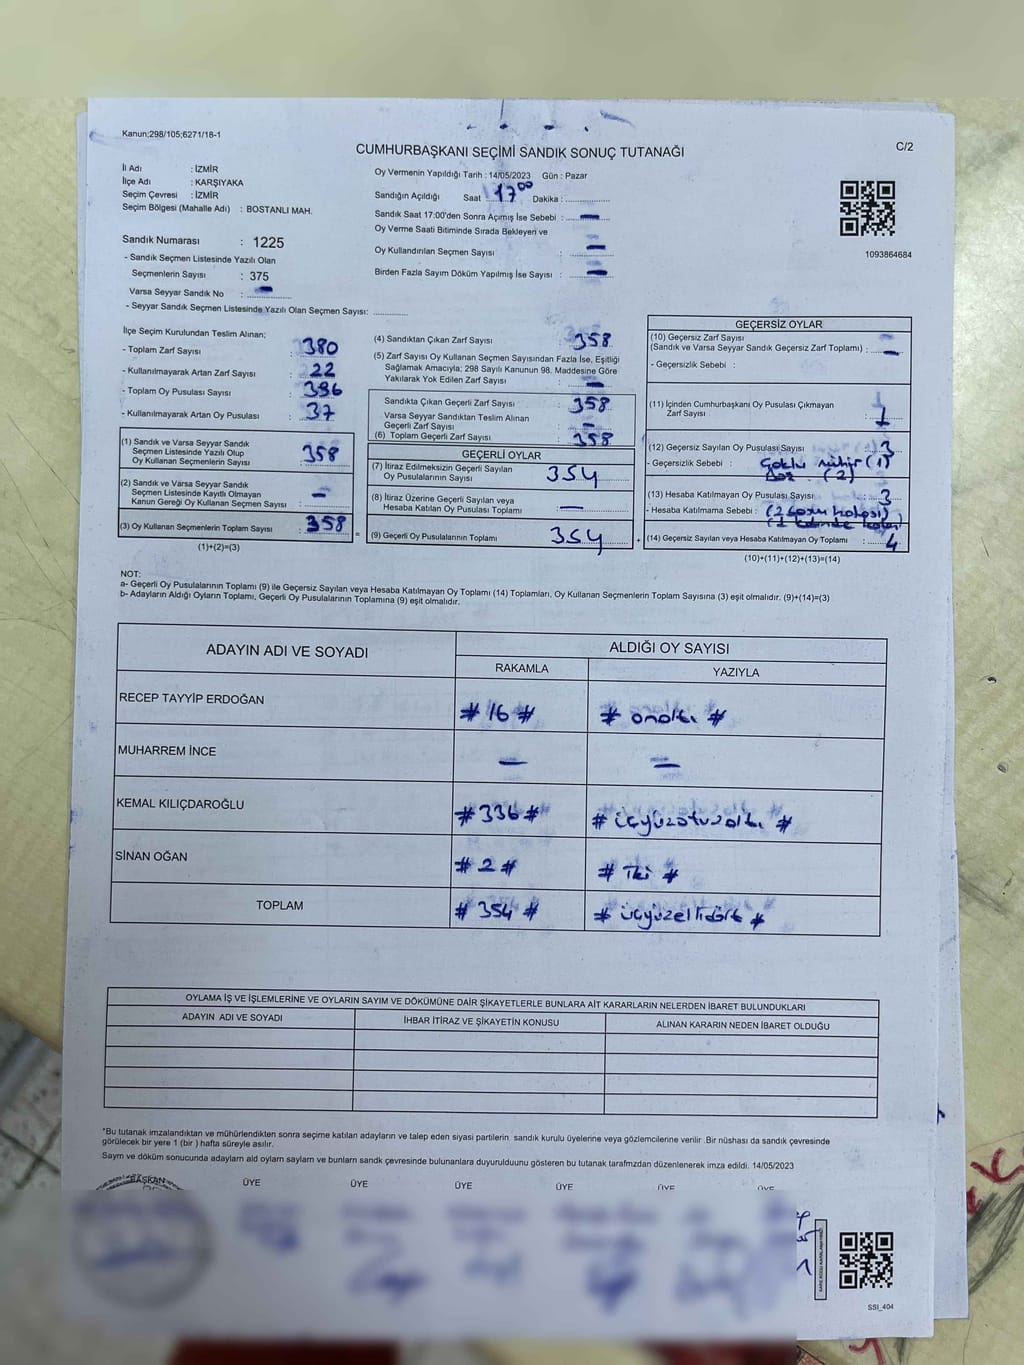 Kanun;298/105;6271/18-1
C/2
CUMHURBAŞKANI SEÇİMİ SANDIK SONUÇ TUTANAĞI
İl Adı : İZMİR
İlçe Adı : KARŞIYAKA
Seçim Çevresi : İZMİR
Seçim Bölgesi (Mahalle Adı) : BOSTANLI MAH.
Sandık Numarası : 1225
- Sandık Seçmen Listesinde Yazılı Olan
Seçmenlerin Sayısı : 375
Varsa Seyyar Sandık No : —
- Seyyar Sandık Seçmen Listesinde Yazılı Olan Seçmen Sayısı: ............
Oy Vermenin Yapıldığı Tarih : 14/05/2023 Gün : Pazar
Sandığın Açıldığı Saat 17⁰⁰ Dakika : ............
Sandık Saat 17:00'den Sonra Açımış İse Sebebi : —
Oy Verme Saati Bitiminde Sırada Bekleyen ve
Oy Kullandırılan Seçmen Sayısı : —
Birden Fazla Sayım Döküm Yapılmış İse Sayısı : —
1093864684
İlçe Seçim Kurulundan Teslim Alınan:
- Toplam Zarf Sayısı : 380
- Kullanılmayarak Artan Zarf Sayısı : 22
- Toplam Oy Pusulası Sayısı : 396
- Kullanılmayarak Artan Oy Pusulası : 37
(1) Sandık ve Varsa Seyyar Sandık
Seçmen Listesinde Yazılı Olup
Oy Kullanan Seçmenlerin Sayısı : 358
(2) Sandık ve Varsa Seyyar Sandık
Seçmen Listesinde Kayıtlı Olmayan
Kanun Gereği Oy Kullanan Seçmen Sayısı : —
(3) Oy Kullanan Seçmenlerin Toplam Sayısı : 358
(1)+(2)=(3)
(4) Sandıktan Çıkan Zarf Sayısı : 358
(5) Zarf Sayısı Oy Kullanan Seçmen Sayısından Fazla İse, Eşitliği
Sağlamak Amacıyla; 298 Sayılı Kanunun 98. Maddesine Göre
Yakılarak Yok Edilen Zarf Sayısı : —
Sandıkta Çıkan Geçerli Zarf Sayısı : 358
Varsa Seyyar Sandıktan Teslim Alınan
Geçerli Zarf Sayısı : —
(6) Toplam Geçerli Zarf Sayısı : 358
GEÇERLİ OYLAR
(7) İtiraz Edilmeksizin Geçerli Sayılan
Oy Pusulalarının Sayısı : 354
(8) İtiraz Üzerine Geçerli Sayılan veya
Hesaba Katılan Oy Pusulası Toplamı : —
(9) Geçerli Oy Pusulalarının Toplamı : 354
GEÇERSİZ OYLAR
(10) Geçersiz Zarf Sayısı
(Sandık ve Varsa Seyyar Sandık Geçersiz Zarf Toplamı) : —
- Geçersizlik Sebebi :
(11) İçinden Cumhurbaşkanı Oy Pusulası Çıkmayan
Zarf Sayısı : 1
(12) Geçersiz Sayılan Oy Pusulası Sayısı : 3
- Geçersizlik Sebebi : Çoklu mühür (1)
(2)
(13) Hesaba Katılmayan Oy Pusulası Sayısı : 3
- Hesaba Katılmama Sebebi : (2
(14) Geçersiz Sayılan veya Hesaba Katılmayan Oy Toplamı : 4
(10)+(11)+(12)+(13)=(14)
NOT:
a- Geçerli Oy Pusulalarının Toplamı (9) ile Geçersiz Sayılan veya Hesaba Katılmayan Oy Toplamı (14) Toplamları, Oy Kullanan Seçmenlerin Toplam Sayısına (3) eşit olmalıdır. (9)+(14)=(3)
b- Adayların Aldığı Oyların Toplamı, Geçerli Oy Pusulalarının Toplamına (9) eşit olmalıdır.
ADAYIN ADI VE SOYADI ALDIĞI OY SAYISI
RAKAMLA YAZIYLA
RECEP TAYYİP ERDOĞAN # 16 # # onaltı #
MUHARREM İNCE — —
KEMAL KILIÇDAROĞLU # 336 # # üçyüzotuzaltı #
SİNAN OĞAN # 2 # # iki #
TOPLAM # 354 # # üçyüzellidört #
OYLAMA İŞ VE İŞLEMLERİNE VE OYLARIN SAYIM VE DÖKÜMÜNE DAİR ŞİKAYETLERLE BUNLARA AİT KARARLARIN NELERDEN İBARET BULUNDUKLARI
ADAYIN ADI VE SOYADI İHBAR İTİRAZ VE ŞİKAYETİN KONUSU ALINAN KARARIN NEDEN İBARET OLDUĞU
*Bu tutanak imzalandıktan ve mühürlendikten sonra seçime katılan adayların ve talep eden siyasi partilerin sandık kurulu üyelerine veya gözlemcilerine verilir .Bir nüshası da sandık çevresinde
görülecek bir yere 1 (bir ) hafta süreyle asılır.
Sayım ve döküm sonucunda adayların ald oyların sayların ve bunların sandk çevresinde bulunanlara duyurulduunu gösteren bu tutanak tarafmzdan düzenlenerek imza edildi. 14/05/2023
BAŞKAN ÜYE ÜYE ÜYE ÜYE ÜYE ÜYE
SSI_404